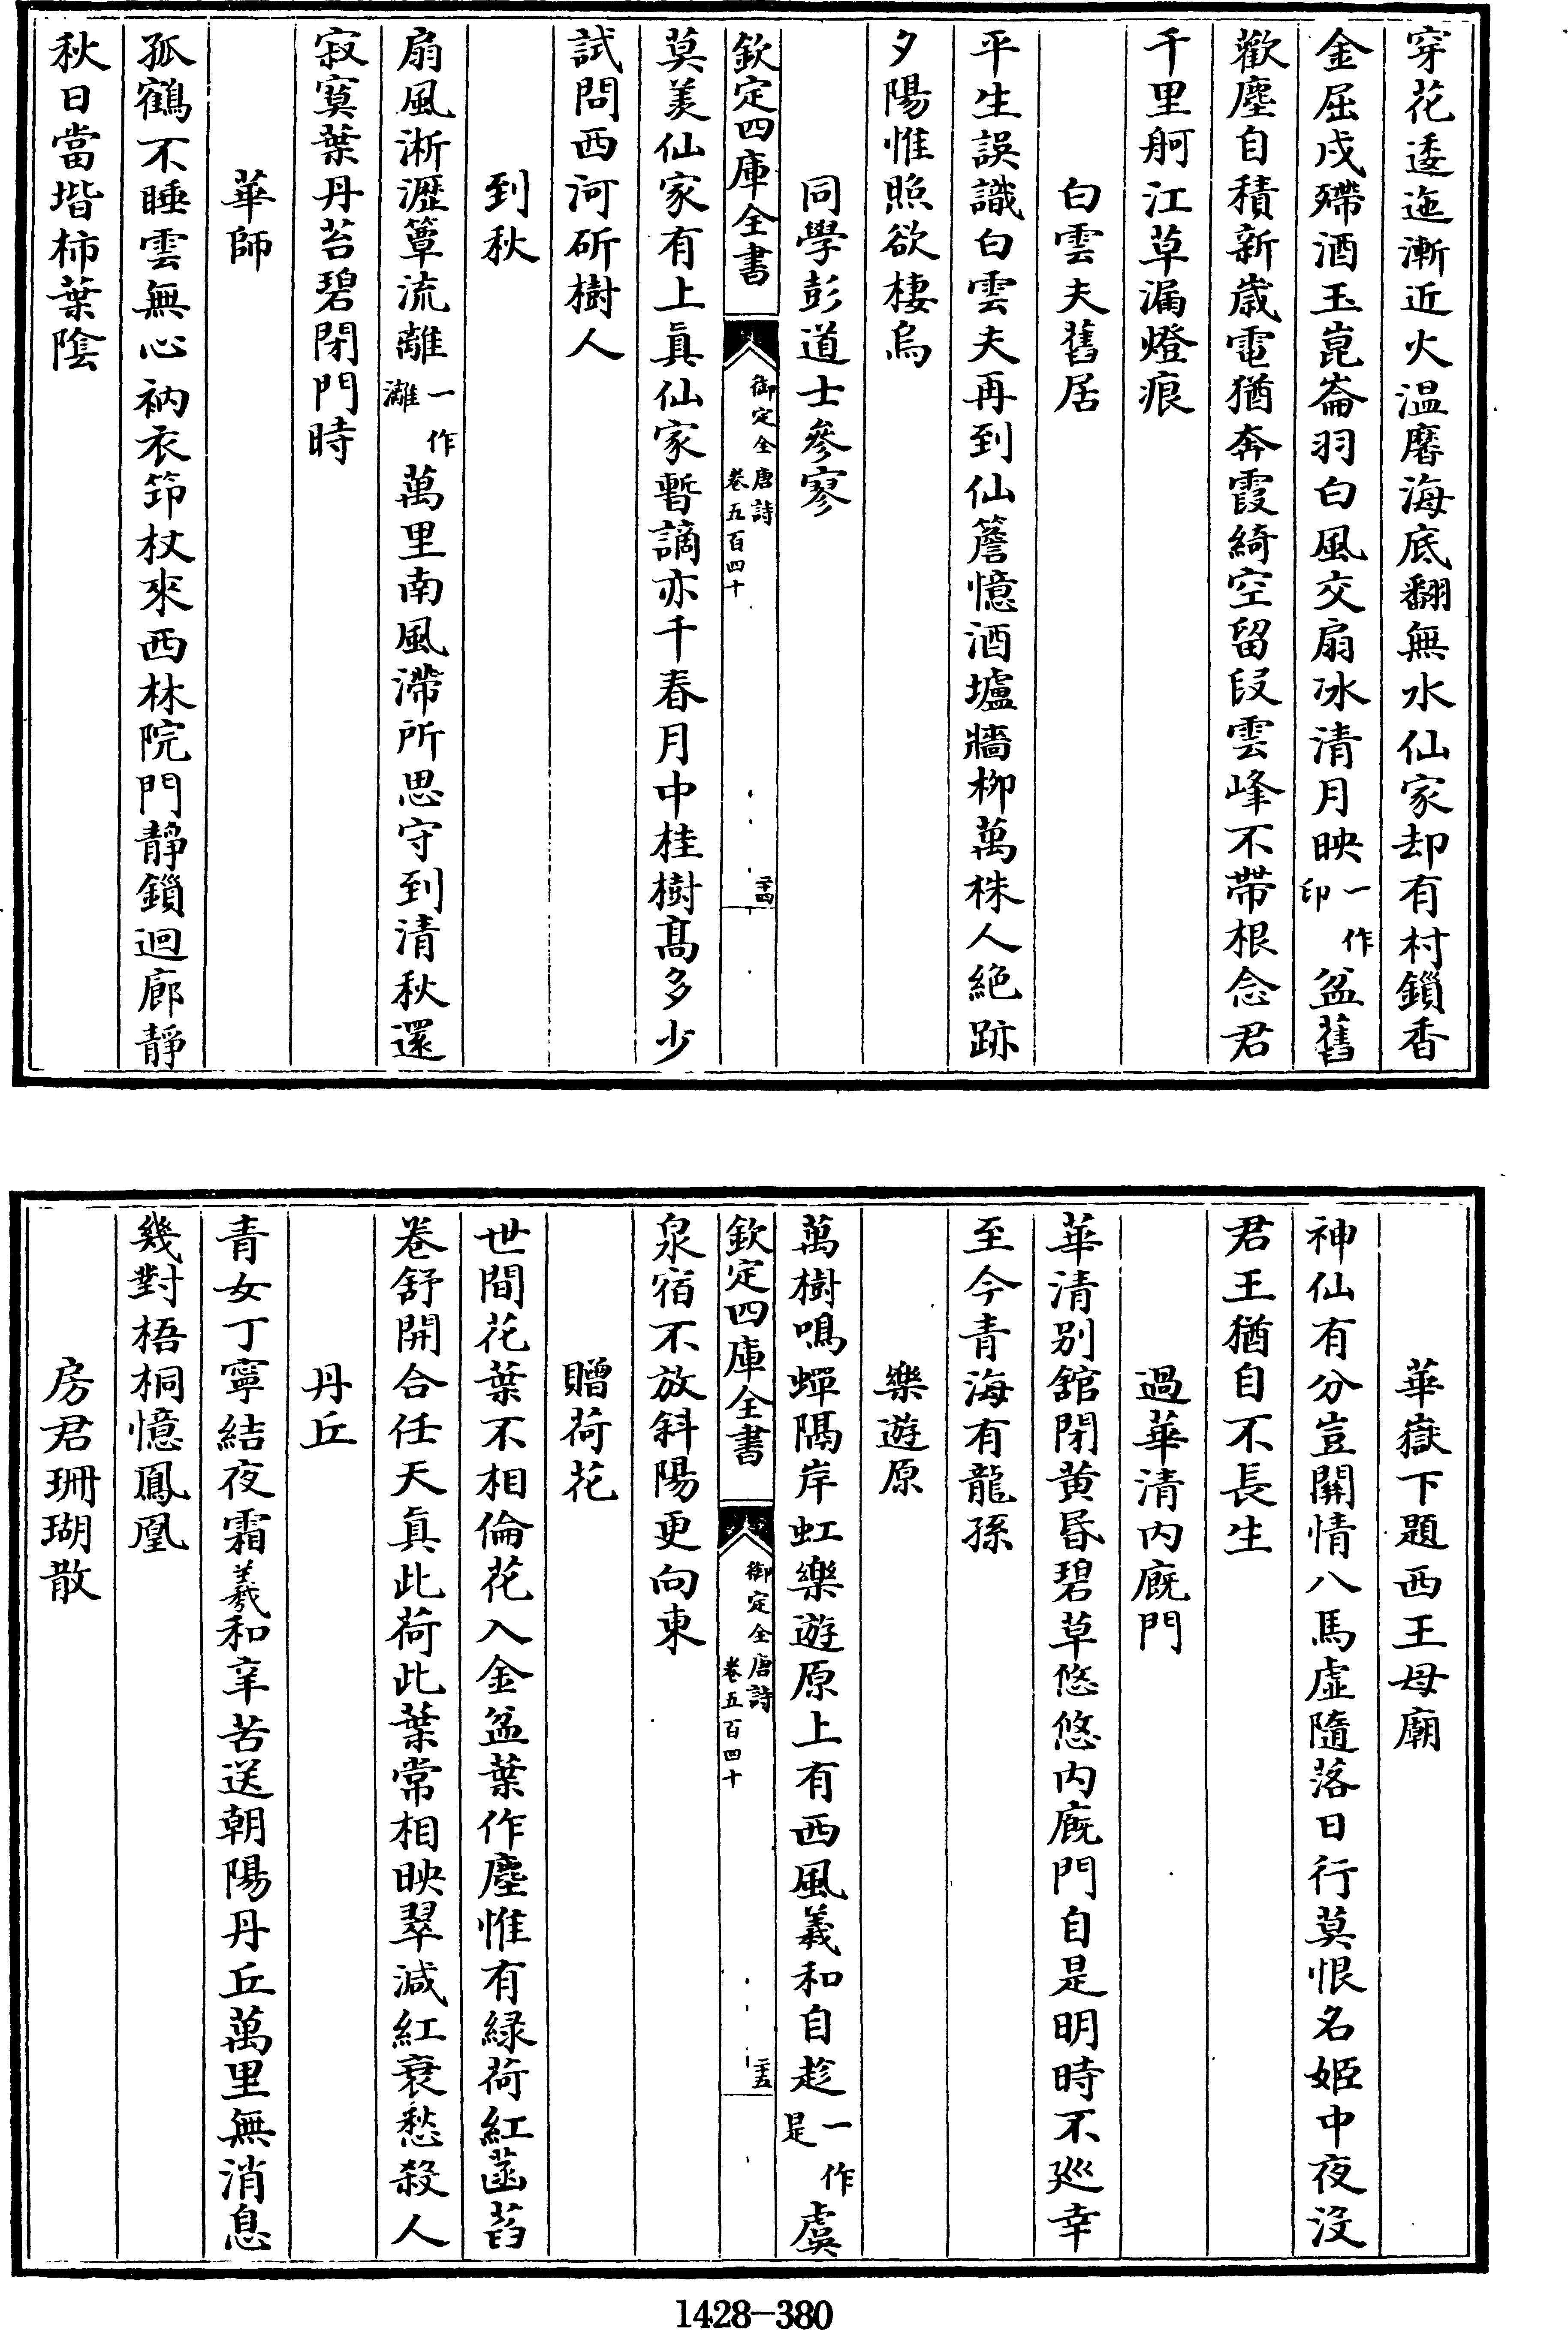 穿花逶迤漸近火溫麐海底翻無水仙家却有村鎖香
金屈戍殢酒玉崑崙羽白風交扇冰清月映一作印盆舊
歡塵自積新歲電猶奔霞綺空留段雲峰不帶根念君
千里舸江草漏燈痕
白雲夫舊居
平生誤識白雲夫再到仙簷憶酒壚牆柳萬株人絶跡
夕陽惟照欲棲烏
同學彭道士參寥
欽定四庫全書
御定全唐詩
卷五百四十
二十四
莫羨仙家有上眞仙家暫謫亦千春月中桂樹髙多少
試問西河斫樹人
到秋
扇風淅瀝簟流離一作灕萬里南風滯所思守到清秋還
寂寞葉丹苔碧閉門時
華師
孤鶴不睡雲無心衲衣笻杖來西林院門靜鎖迴廊靜
秋日當堦柿葉陰
華嶽下題西王母廟
神仙有分豈關情八馬虛隨落日行莫恨名姬中夜沒
君王猶自不長生
過華清内廐門
華清别舘閉黄昏碧草悠悠内廐門自是明時不廵幸
至今青海有龍孫
樂遊原
萬樹鳴蟬隔岸虹樂遊原上有西風羲和自趁一作是虞
欽定四庫全書
御定全唐詩
卷五百四十
二十五
泉宿不放斜陽更向東
贈荷花
世間花葉不相倫花入金盆葉作塵惟有緑荷紅菡萏
卷舒開合任天眞此荷此葉常相映翠減紅衰愁殺人
丹丘
青女丁寧結夜霜羲和辛苦送朝陽丹丘萬里無消息
幾對梧桐憶鳳凰
房君珊瑚散
1428-380